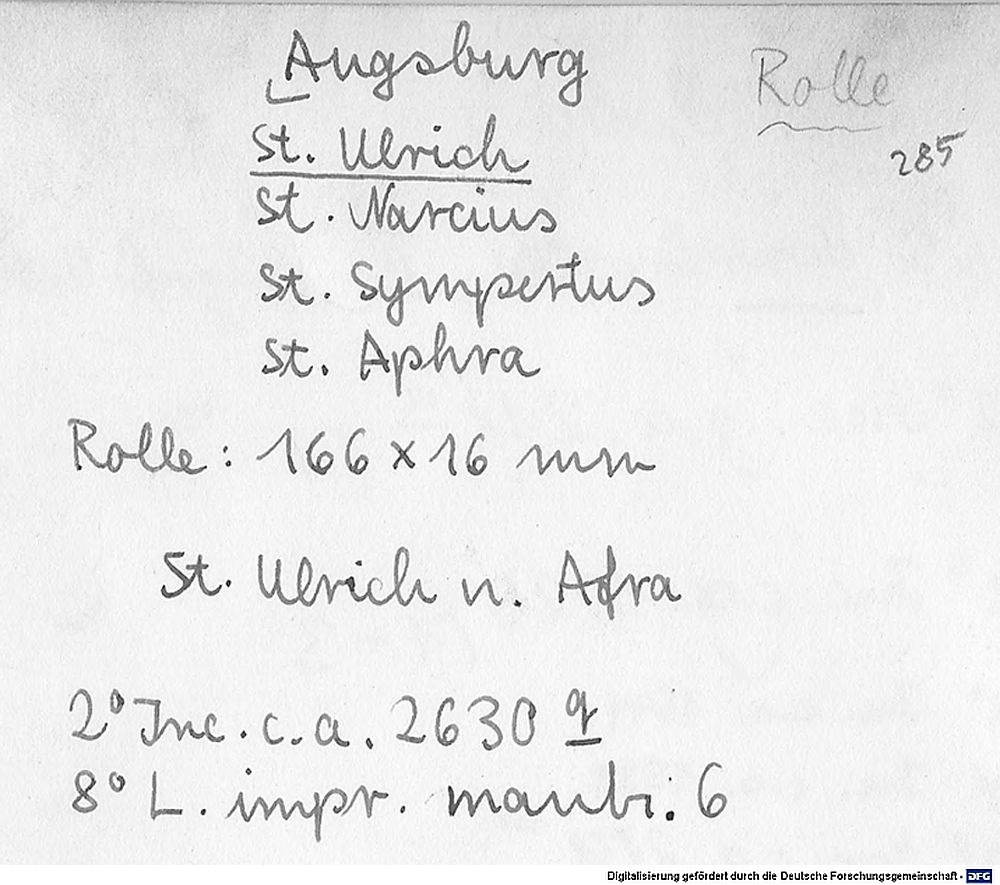 Augsburg
Rolle
285
St. Ulrich
St. Narcius
St. Sympertus
St. Aphra
Rolle: 166 x 16 mm
St. Ulrich u. Afra
2° Inc. c. a. 2630 q
8° L. impr. manbi. 6
Digitalisierung gefördert durch die Deutsche Forschungsgemeinschaft - DFG